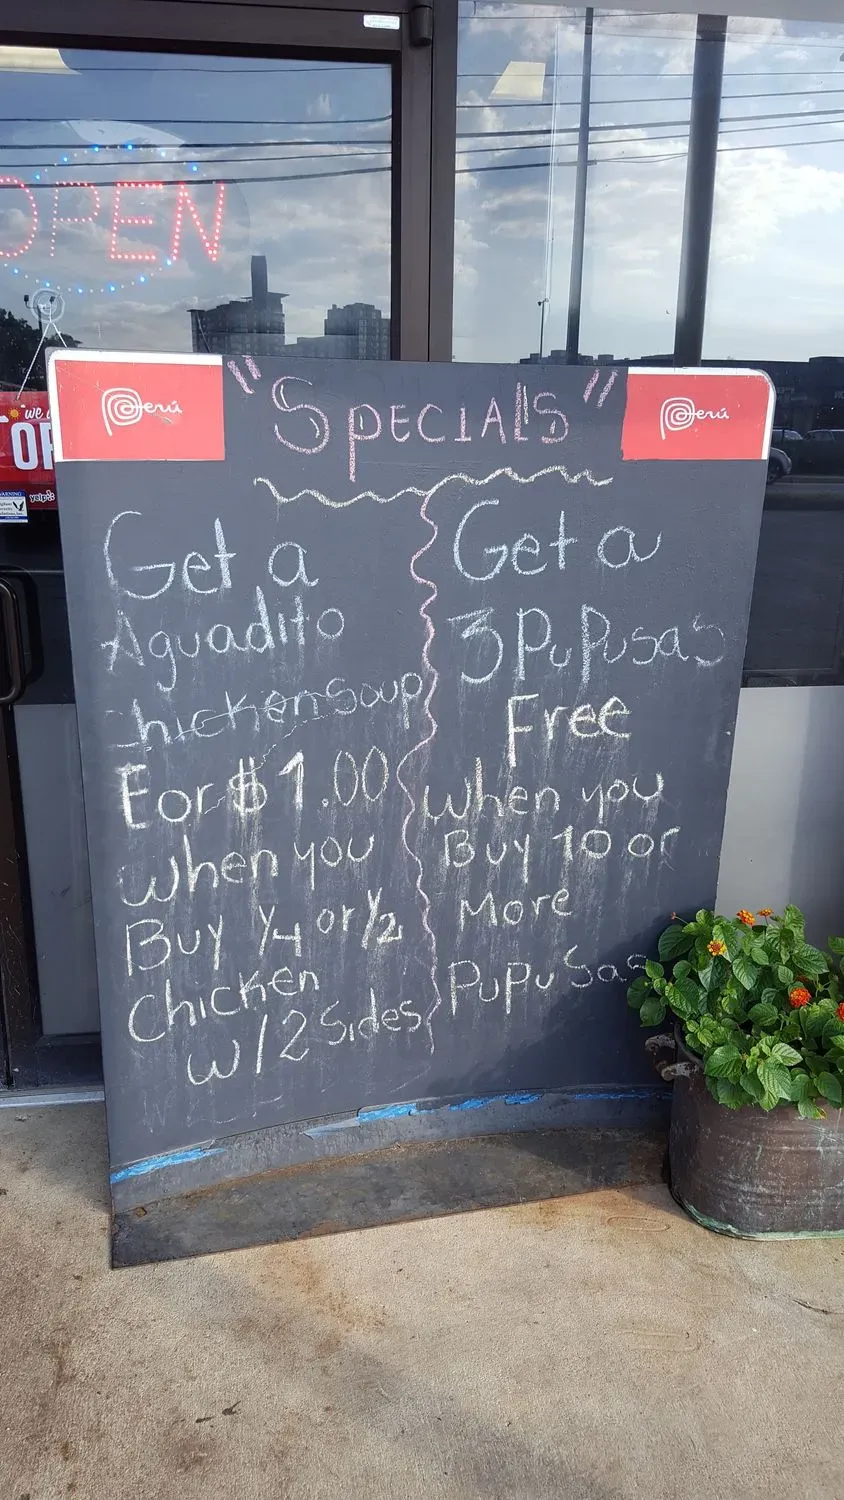 OPEN
Perú
"Specials"
Perú
we
OP
yelp
WARNING
Get a
Aguadito
Chicken Soup
For $1.00
when you
Buy 1/4 or 1/2
Chicken
w/2 Sides
Get a
3 PuPusas
Free
when you
Buy 10 or
More
PuPuSas